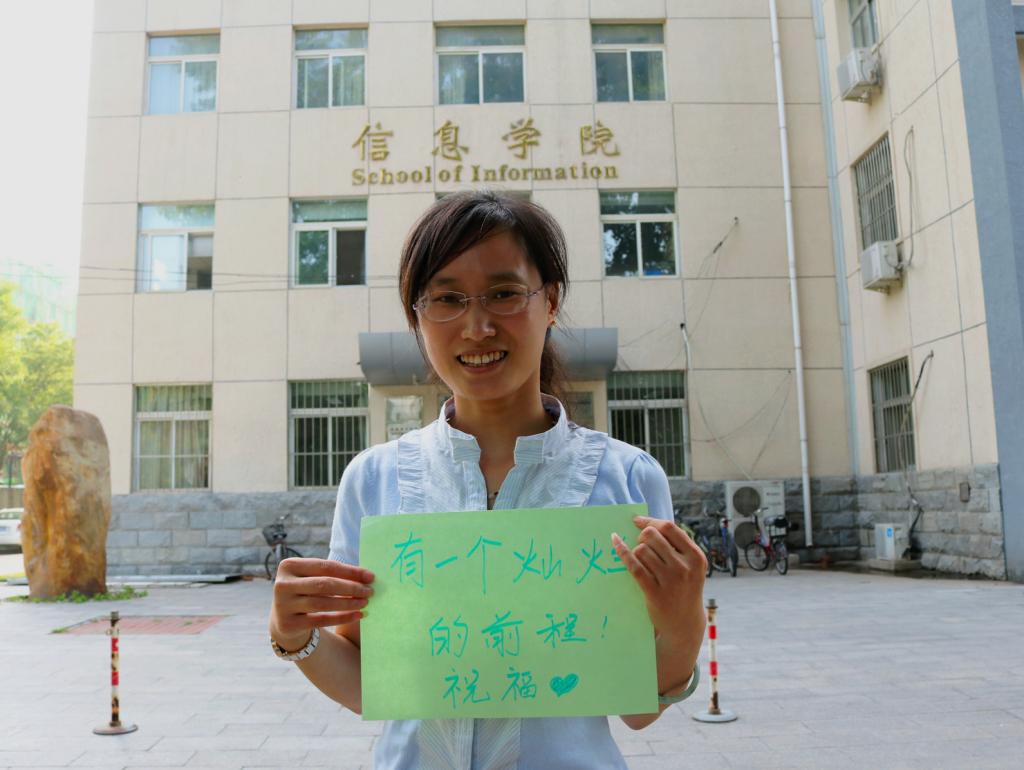 信息学院
School of Information
有一个灿烂
的前程!
祝福♥